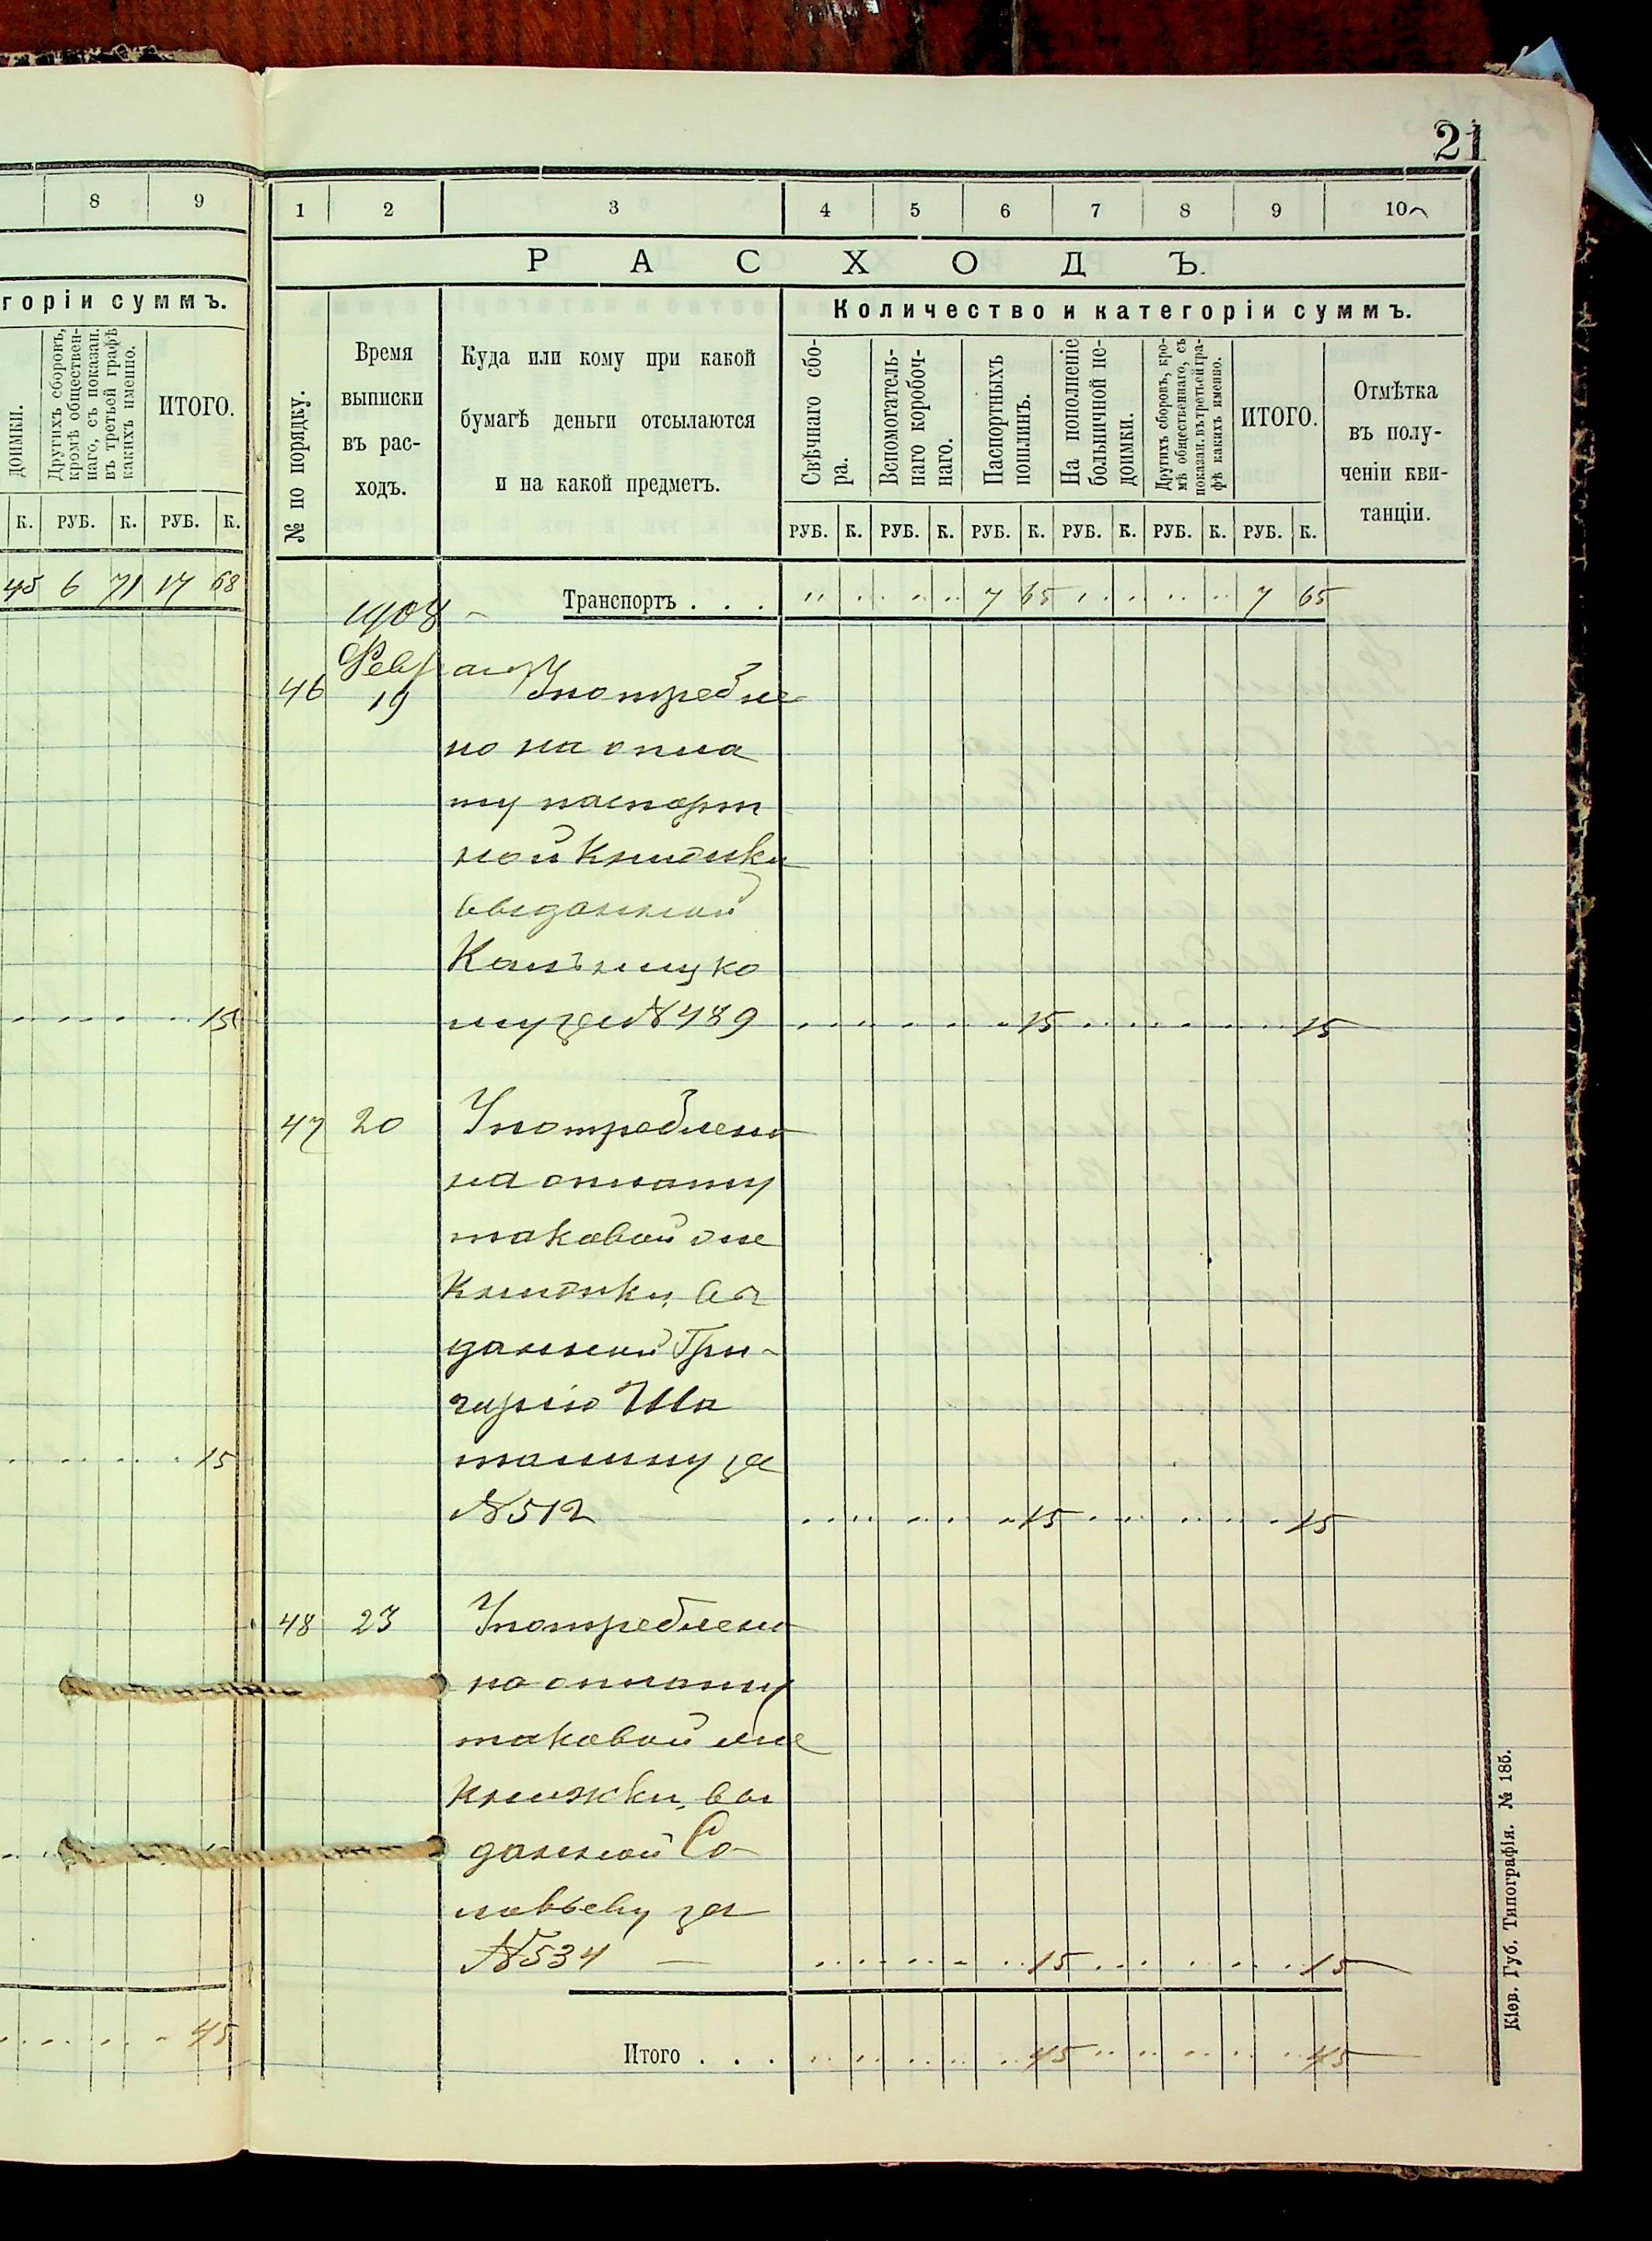 21
8 9
горіи суммъ.
доимки.
Другихъ сборовъ,
кромѣ обществен-
наго, съ показан.
въ третьей графѣ
какихъ именно.
ИТОГО.
К. РУБ. К. РУБ. К.
45 6 71 17 68
15
15
45
1 2 3 4 5 6 7 8 9 10
РАСХОДЪ.
№ по порядку.
Время
выписки
въ рас-
ходъ.
Куда или кому при какой
бумагѣ деньги отсылаются
и на какой предметъ.
Количество и категоріи суммъ.
Свѣчнаго сбо-
ра.
Вспомогатель-
наго коробоч-
наго.
Паспортныхъ
пошлинъ.
На пополненіе
больничной не-
доимки.
Другихъ сборовъ, кро-
мѣ общественнаго, съ
показан. въ третьей гра-
фѣ какихъ именно.
ИТОГО.
Отмѣтка
въ полу-
ченіи кви-
танціи.
РУБ. К. РУБ. К. РУБ. К. РУБ. К. РУБ. К. РУБ. К.
Транспортъ . . . 7 65 7 65
1908
46 19 Употребле
но на опла
ту паспорт
ной книжки
выданной
му за № 489 15 15
47 20 Употреблено
на оплату
таковой же
книжки, вы
данной Гри-
горію Ша
талину за
№ 512 15 15
48 23 Употреблено
на оплату
таковой же
книжки, вы
данной Со-
ловьеву за
№ 534 — 15 15
Итого . . . 45 45
Кіев. Губ. Типографія. № 185.